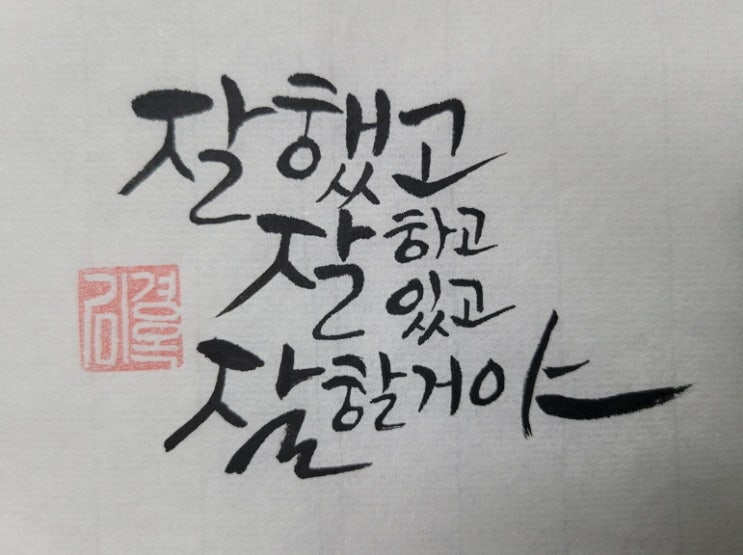 잘했고
잘하고
있고
잘할거야